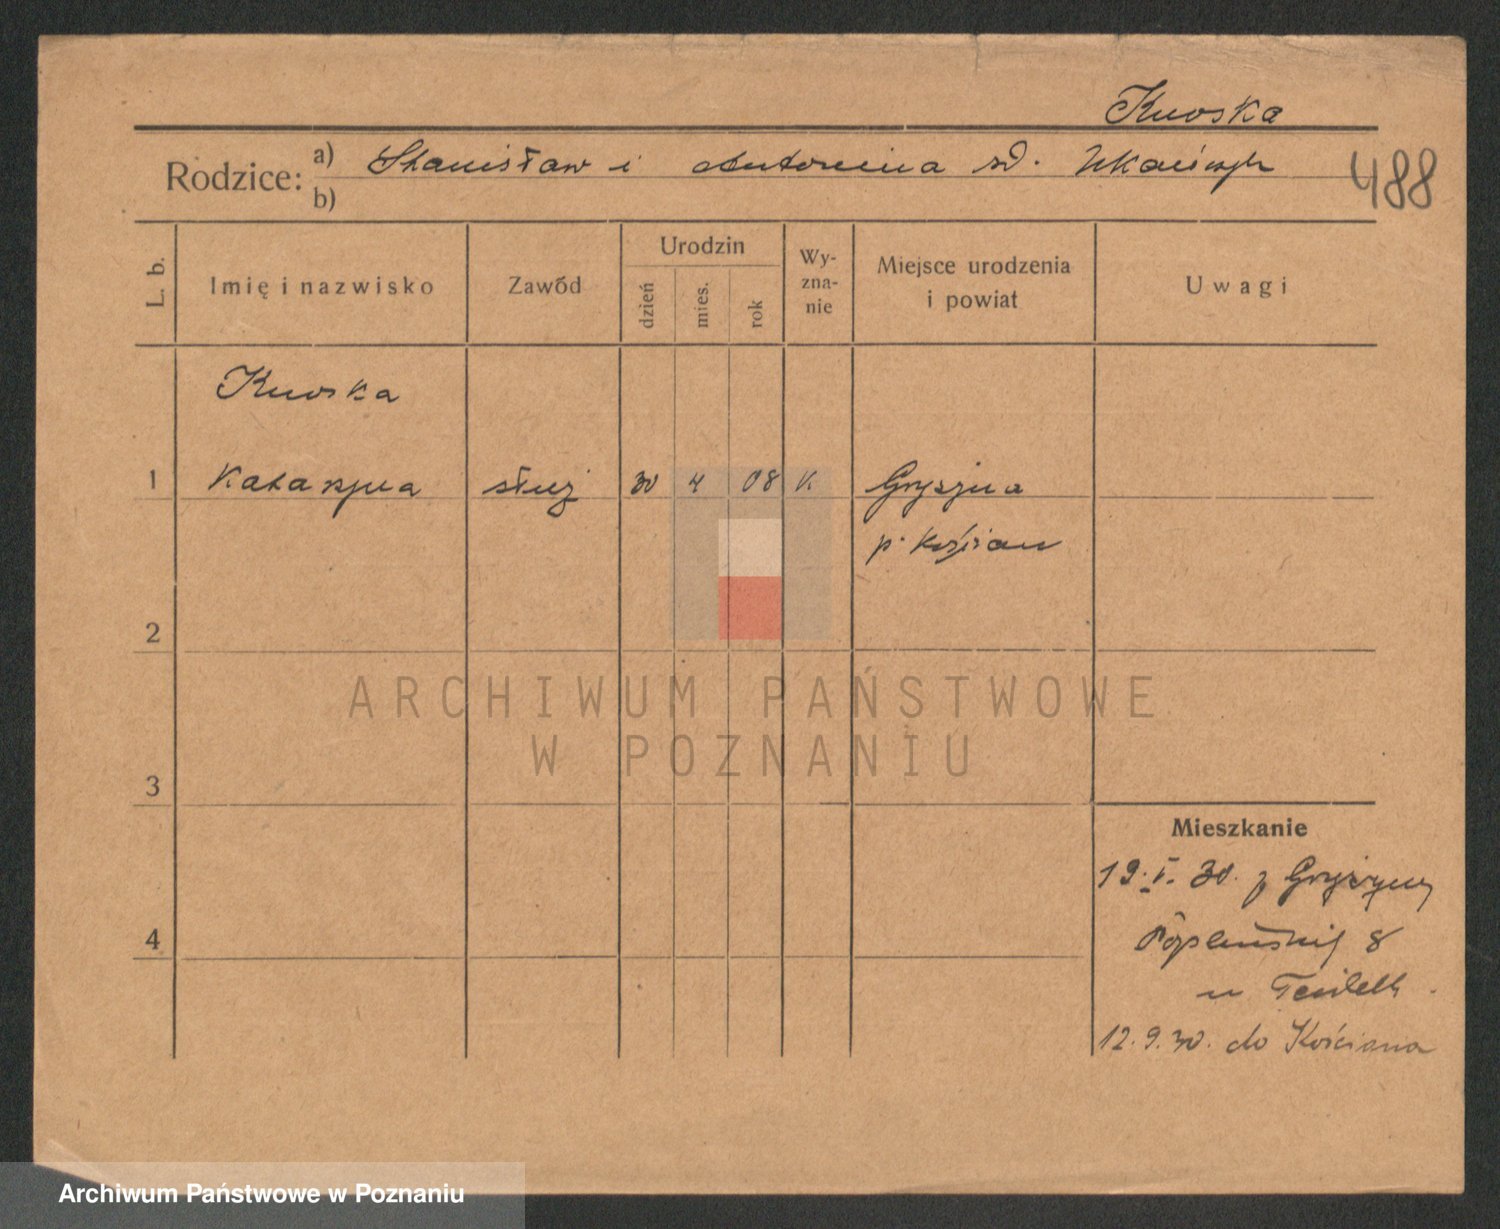 Kuoska
Rodzice: a) Stanisław i Antonina zd.
b)
488
L. b.
Imię i nazwisko
Zawód
Urodzin
dzień
mies.
rok
Wy-
zna-
nie
Miejsce urodzenia
i powiat
Uwagi
Kuoska
1 Katarzyna służ 30 4 08 K Gryżyna
p. Kościan
2
3
4
ARCHIWUM PAŃSTWOWE
W POZNANIU
Mieszkanie
19. V. 30. z Gryżyny
8
u
12.9.30. do Kościana
Archiwum Państwowe w Poznaniu